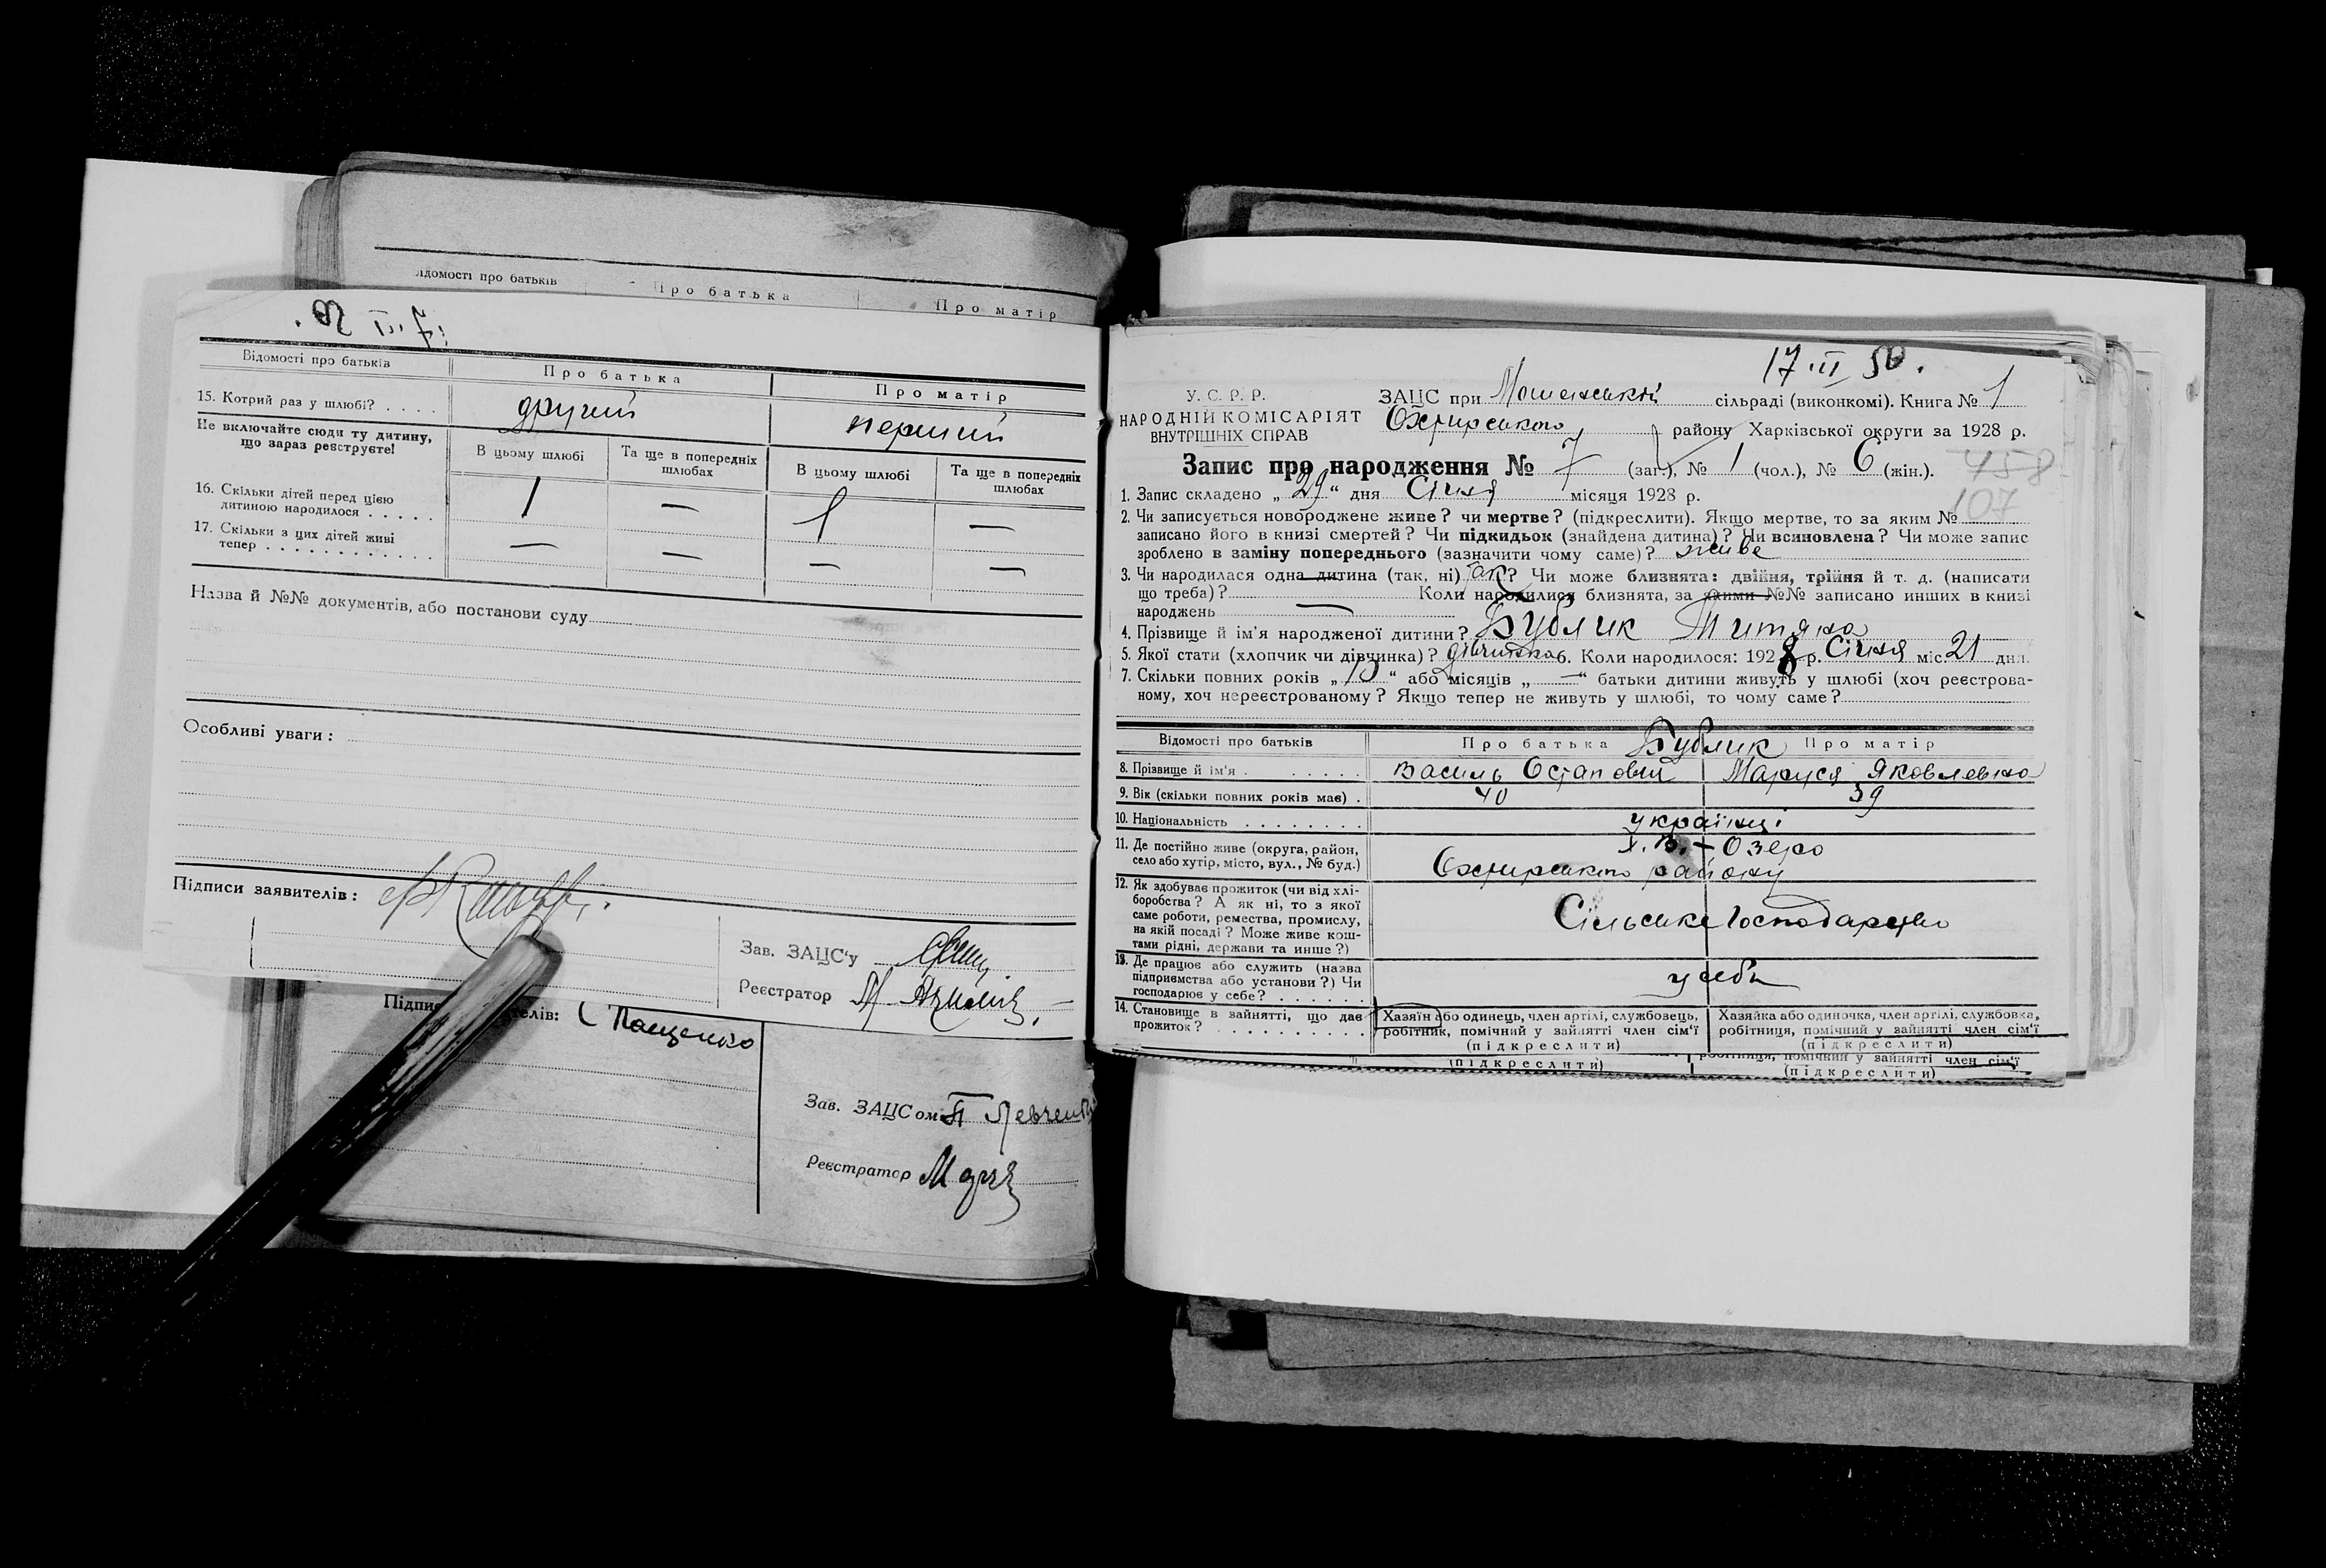 ідомості про батьків
Про батька
Про матір
Відомості про батьків
Про батька
Про матір
15. Котрий раз у шлюбі? . . . .
другий
перший
Не включайте сюди ту дитину,
що зараз реєструєте!
В цьому шлюбі
Та ще в попередніх
шлюбах
В цьому шлюбі
Та ще в попередніх
шлюбах
16. Скільки дітей перед цією
дитиною народилося . . . . .
1 — 1 —
17. Скільки з цих дітей живі
тепер . . . . . . . . . . . .
— — — —
Назва й №№ документів, або постанови суду
Особливі уваги:
Підписи заявителів:
Зав. ЗАЦС'у
Реєстратор
Підпи
елів: Пащенко
Зав. ЗАЦСом
Реєстратор
17.II 50.
У. С. Р. Р.
НАРОДНІЙ КОМІСАРІЯТ
ВНУТРІШНІХ СПРАВ
ЗАЦС при Мошенській сільраді (виконкомі). Книга № 1
Охтирського району Харківської округи за 1928 р.
Запис про народження № 7 (заг.), № 1 (чол.), № 6 (жін.).
458
107
1. Запис складено „ 29 “ дня Січня місяця 1928 р.
2. Чи записується новороджене живе? чи мертве? (підкреслити). Якщо мертве, то за яким №
записано його в книзі смертей? Чи підкидьок (знайдена дитина)? Чи всиновлена? Чи може запис
зроблено в заміну попереднього (зазначити чому саме)? живе
3. Чи народилася одна дитина (так, ні) так? Чи може близнята: двійня, трійня й т. д. (написати
що треба)? Коли народилися близнята, за якими №№ записано инших в книзі
народжень —
4. Прізвище й ім'я народженої дитини? Бублик
5. Якої стати (хлопчик чи дівчинка)? дівчинка 6. Коли народилося: 1928 р. Січня міс. 21 дня.
7. Скільки повних років „ 10 “ або місяців „ — “ батьки дитини живуть у шлюбі (хоч реєстрова-
ному, хоч нереєстрованому? Якщо тепер не живуть у шлюбі, то чому саме?
Відомості про батьків
Про батька
Бублик
Про матір
8. Прізвище й ім'я . . . . . . .
Василь Остапович
Маруся Яковлевна
9. Вік (скільки повних років має) .
40
39
10. Національність . . . . . . . .
українці
11. Де постійно живе (округа, район,
село або хутір, місто, вул., № буд.)
х. В.-Озеро
Охтирського району
12. Як здобуває прожиток (чи від хлі-
боробства? А як ні, то з якої
саме роботи, ремества, промислу,
на якій посаді? Може живе кош-
тами рідні, держави та инше?)
Сільське Господарство
13. Де працює або служить (назва
підприємства або установи?) Чи
господарює у себе? . . . . . .
у себе
14. Становище в зайнятті, що дає
прожиток? . . . . . . . . . .
Хазяїн або одинець, член артілі, службовець,
робітник, помічний у зайнятті член сім'ї
(підкреслити)
Хазяйка або одиночка, член артілі, службовка,
робітниця, помічний у зайнятті член сім'ї
(підкреслити)
(підкреслити)
робітниця, помічний у зайнятті член сім'ї
(підкреслити)